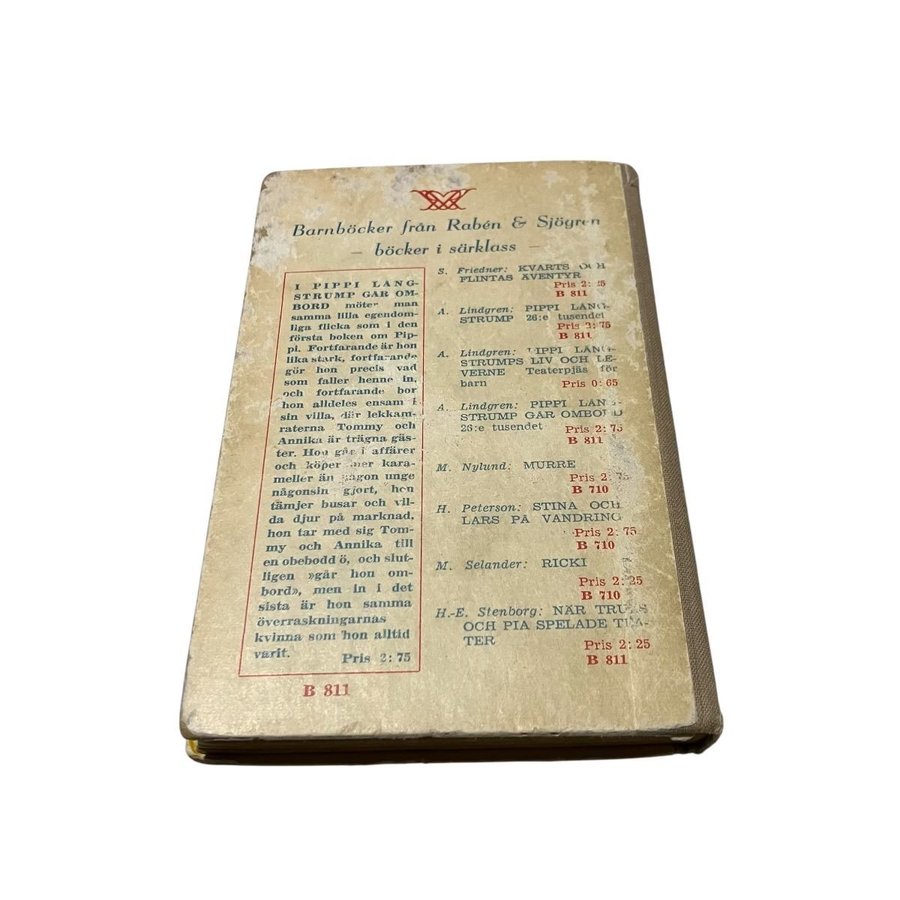 Barnböcker från Rabén & Sjögren
– böcker i särklass –
I PIPPI LÅNG-
STRUMP GÅR OM-
BORD möter man
samma lilla egendom-
liga flicka som i den
första boken om Pip-
pi. Fortfarande är hon
lika stark, fortfarande
gör hon precis vad
som faller henne in,
och fortfarande bor
hon alldeles ensam i
sin villa, där lekkam-
raterna Tommy och
Annika är trägna gäs-
ter. Hon går i affärer
och köper mer kara-
meller än någon unge
någonsin gjort, hon
tämjer busar och vil-
da djur på marknad,
hon tar med sig Tom-
my och Annika till
en obebodd ö, och slut-
ligen »går hon om-
bord», men in i det
sista är hon samma
överraskningarnas
kvinna som hon alltid
varit. Pris 2:75
B 811
S. Friedner: KVARTS OCH
FLINTAS ÄVENTYR
Pris 2:25
B 811
A. Lindgren: PIPPI LÅNG-
STRUMP 26:e tusendet
Pris 2:75
B 811
A. Lindgren: PIPPI LÅNG-
STRUMPS LIV OCH LE-
VERNE Teaterpjäs för
barn Pris 0:65
A. Lindgren: PIPPI LÅNG-
STRUMP GÅR OMBORD
26:e tusendet Pris 2:75
B 811
M. Nylund: MURRE
Pris 2:75
B 710
H. Peterson: STINA OCH
LARS PÅ VANDRING
Pris 2:75
B 710
M. Selander: RICKI
Pris 2:25
B 710
H.-E. Stenborg: NÄR TRULS
OCH PIA SPELADE TEA-
TER
Pris 2:25
B 811